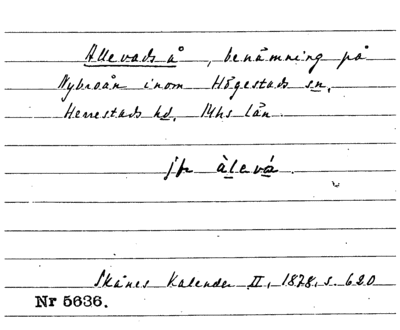 Allevads å, benämning på
Nybroån inom Högestads sn.
Herrestads hd. Mhs län.
jfr àlevá.
Skånes Kalender II, 1878, s. 620
Nr 5636.